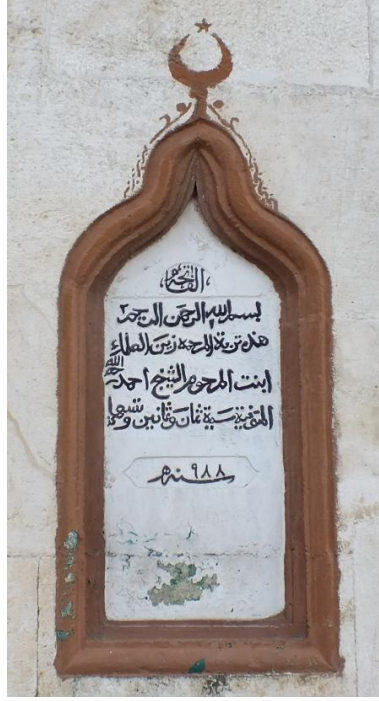 الفاتحة
بسم الله الرحمن الرحيم
هذه تربة المرحومة زين العلماء
ابنت المرحوم الشيخ احمد رحمه الله
المتوفية سنة ثمان وثمانين وتسعماية
سنه ٩٨٨